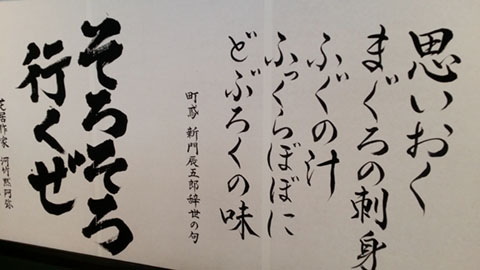 思いおく
まぐろの刺身
ふぐの汁
ふっくらぼぼに
どぶろくの味
町鳶 新門辰五郎辞世の句
そろそろ
行くぜ
芝居作家 河竹黙阿弥